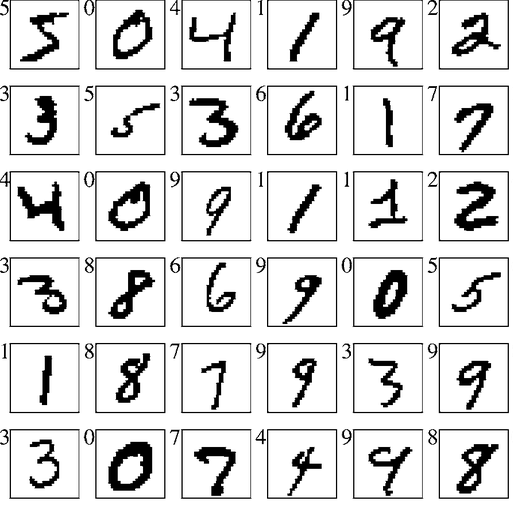 5 5 0 0 4 4 1 1 9 9 2 2
3 3 5 5 3 3 6 6 1 1 7 7
4 4 0 0 9 9 1 1 1 1 2 2
3 3 8 8 6 6 9 9 0 0 5 5
1 1 8 8 7 7 9 9 3 3 9 9
3 3 0 0 7 7 4 4 9 9 8 8